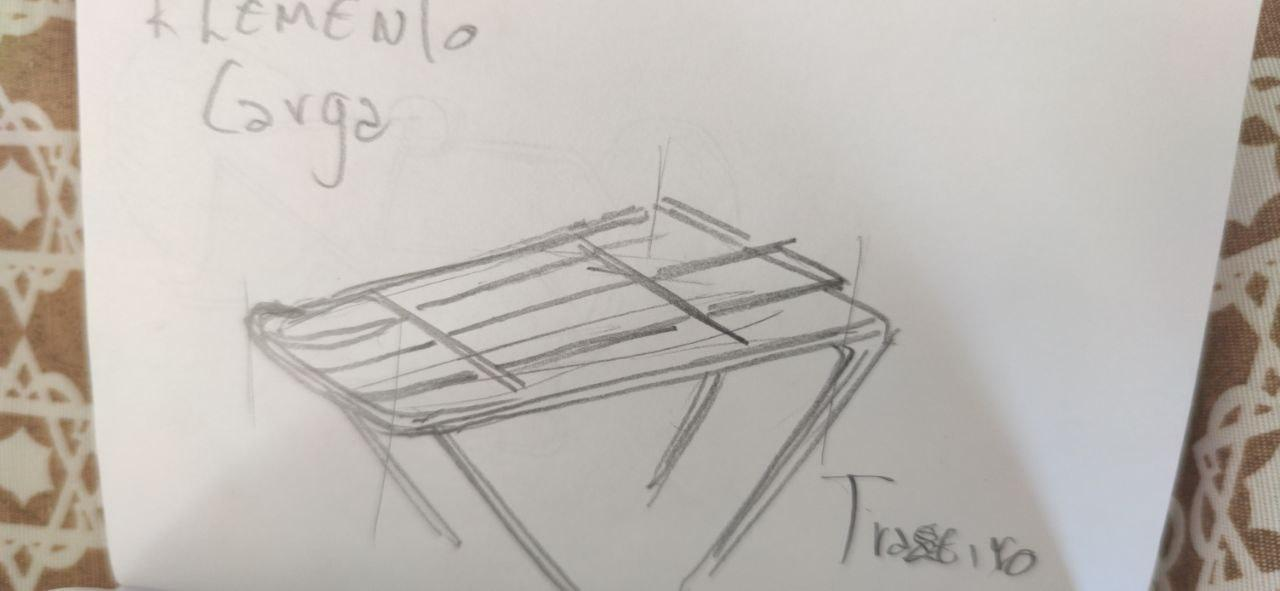 ELEMENTO
Carga
Traseiro